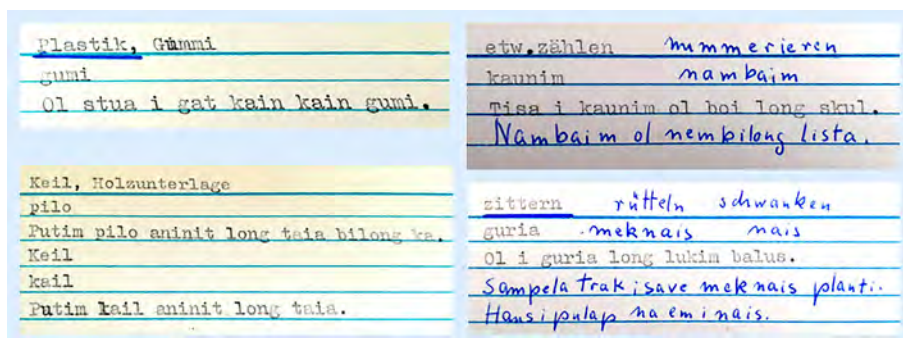 Plastik, Gummi
gumi
Ol stua i gat kain kain gumi.
Keil, Holzunterlage
pilo
Putim pilo aninit long taia bilong ka.
Keil
kail
Putim kail aninit long taia.
etw.zählen nummerieren
kaunim nambaim
Tisa i kaunim ol boi long skul.
Nambaim ol nem bilong lista.
zittern rütteln schwanken
guria meknais nais
Ol i guria long lukim balus.
Sampela trak i save meknais planti.
Haus i pulap na em i nais.